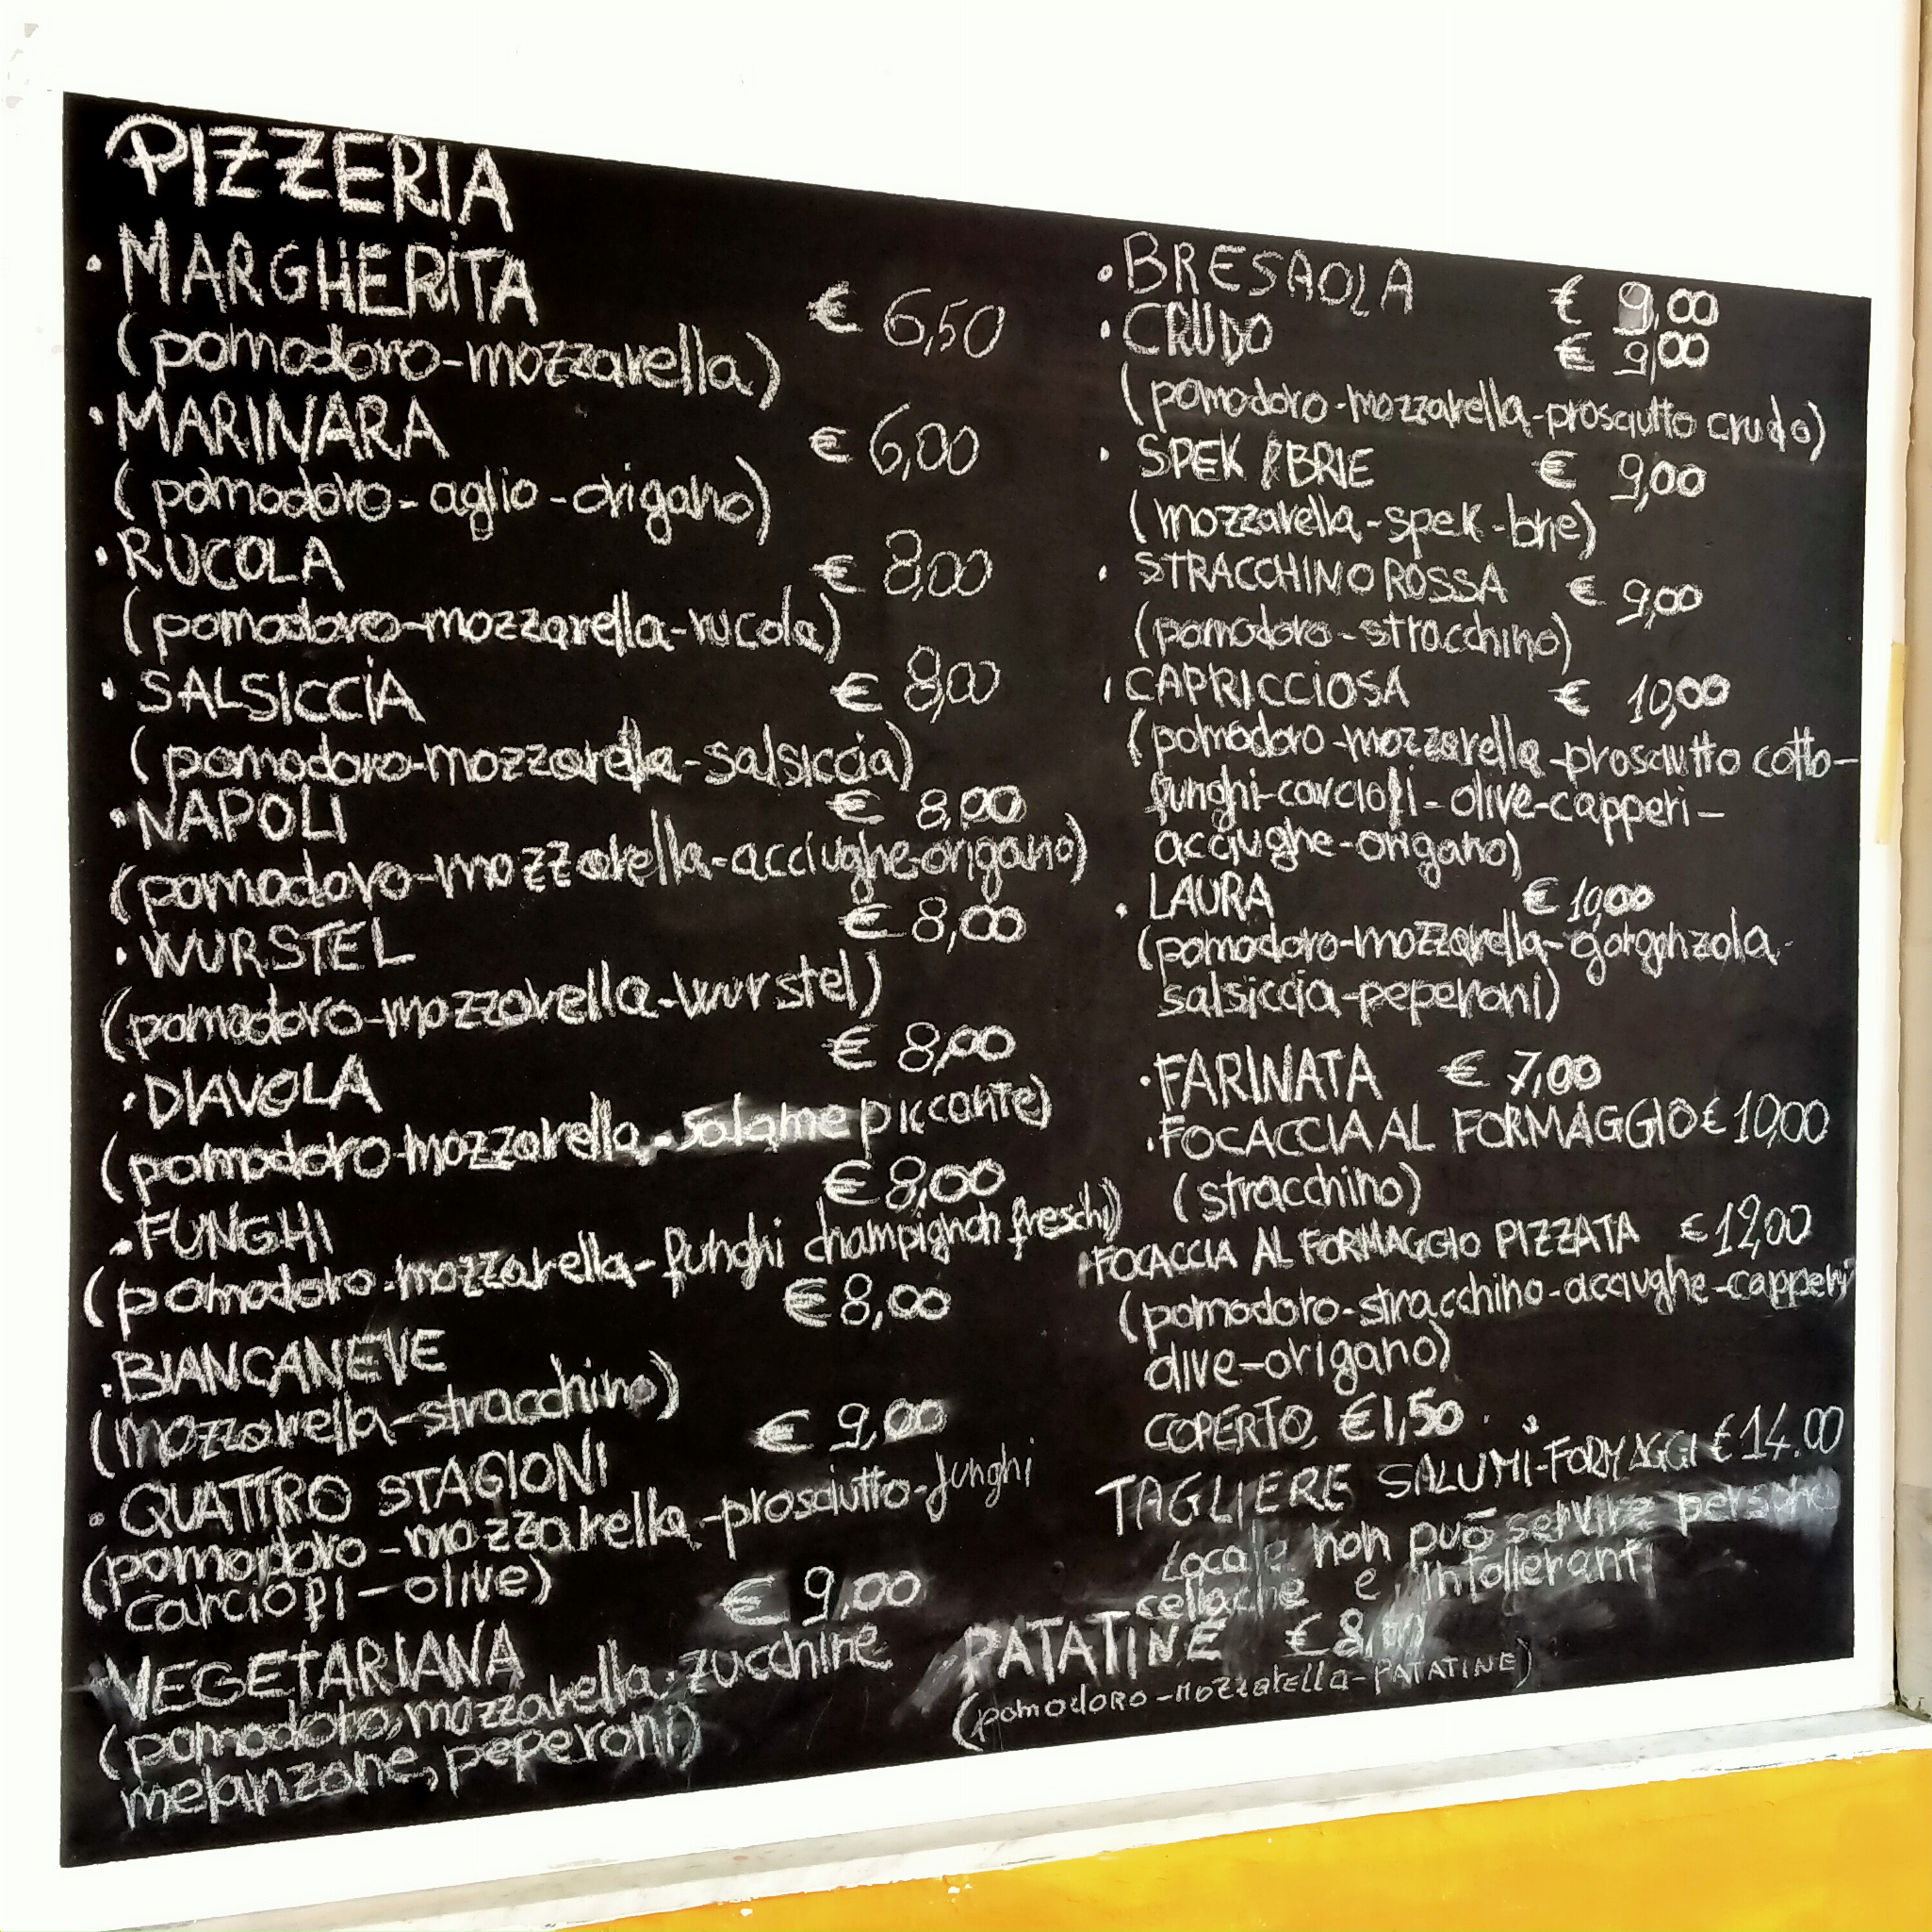 PIZZERIA
• MARGHERITA € 6,50
(pomodoro-mozzarella)
• MARINARA € 6,00
(pomodoro-aglio-origano)
• RUCOLA € 8,00
(pomodoro-mozzarella-rucola)
• SALSICCIA € 8,00
(pomodoro-mozzarella-salsiccia)
• NAPOLI € 8,00
(pomodoro-mozzarella-acciughe-origano)
• WURSTEL € 8,00
(pomodoro-mozzarella-wurstel)
• DIAVOLA € 8,00
(pomodoro-mozzarella-salame piccante)
• FUNGHI € 8,00
(pomodoro-mozzarella-funghi champignon freschi)
• BIANCANEVE € 8,00
(mozzarella-stracchino)
• QUATTRO STAGIONI € 9,00
(pomodoro-mozzarella-prosciutto-funghi
carciofi-olive)
VEGETARIANA € 9,00
(pomodoro, mozzarella, zucchine
melanzane, peperoni)
• BRESAOLA € 9,00
• CRUDO € 9,00
(pomodoro-mozzarella-prosciutto crudo)
• SPEK & BRIE € 9,00
(mozzarella-spek-brie)
• STRACCHINO ROSSA € 9,00
(pomodoro-stracchino)
• CAPRICCIOSA € 10,00
(pomodoro-mozzarella-prosciutto cotto-
funghi-carciofi-olive-capperi-
acciughe-origano)
• LAURA € 10,00
(pomodoro-mozzarella-gorgonzola-
salsiccia-peperoni)
• FARINATA € 7,00
• FOCACCIA AL FORMAGGIO € 10,00
(stracchino)
• FOCACCIA AL FORMAGGIO PIZZATA € 12,00
(pomodoro-stracchino-acciughe-capperi
olive-origano)
COPERTO € 1,50
TAGLIERE SALUMI-FORMAGGI € 14.00
Locale non può servire persone
celiache e intolleranti
PATATINE € 8,00
(pomodoro-mozzarella-PATATINE)